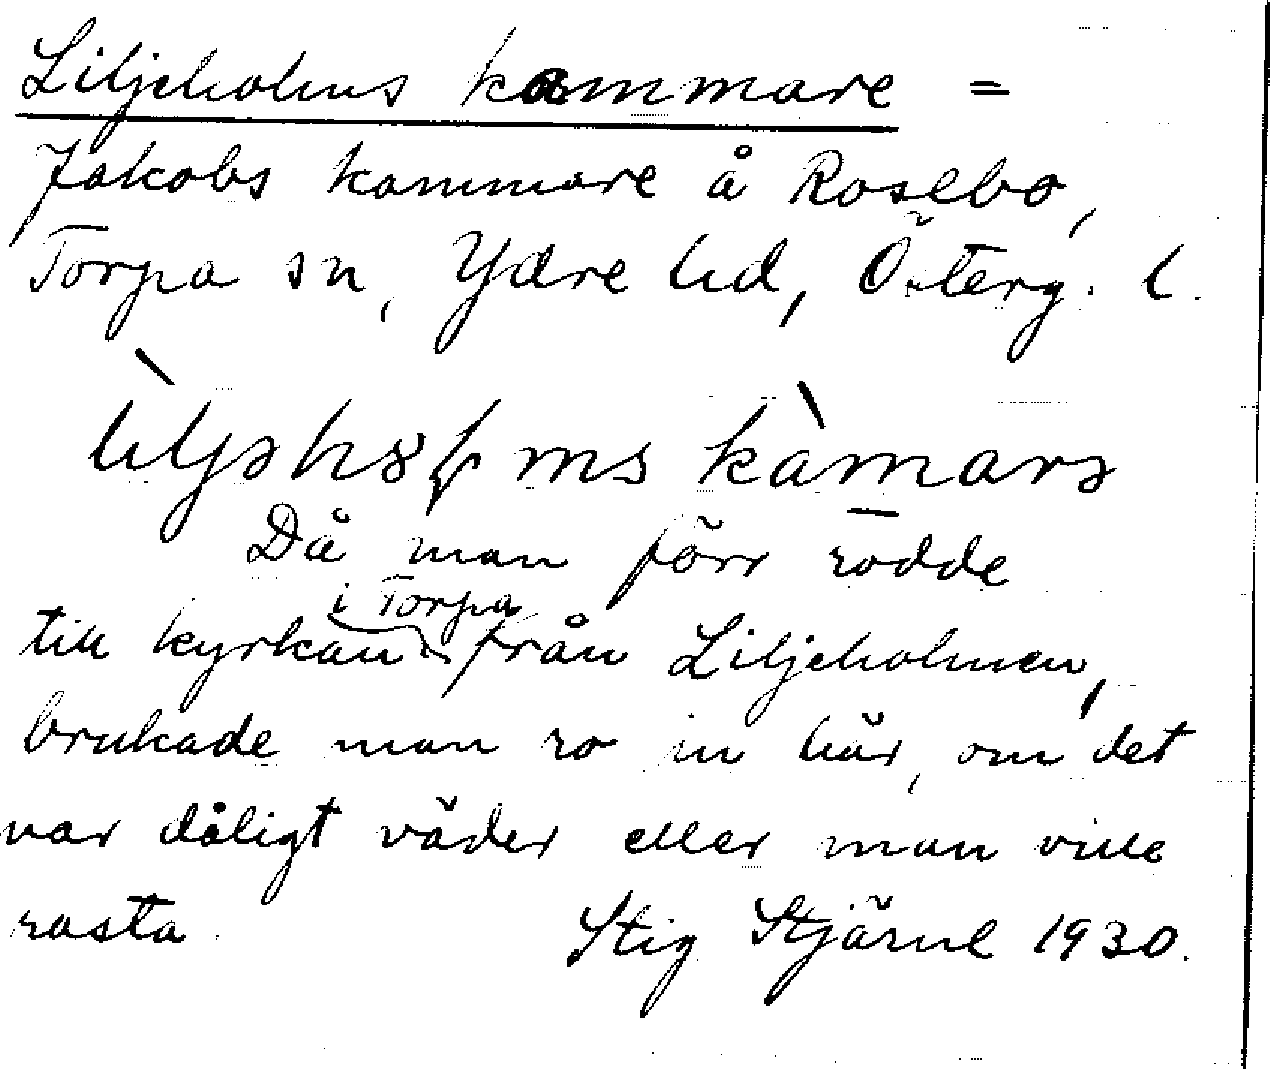 Liljeholms kammare =
Jakobs kammare å Rosebo,
Torpa sn, Ydre hd, Österg. l.
Då man förr rodde
till kyrkan i Torpa från Liljeholmen,
brukade man ro in här, om det
var dåligt väder eller man ville
rasta.
Stig Stjärne 1930.